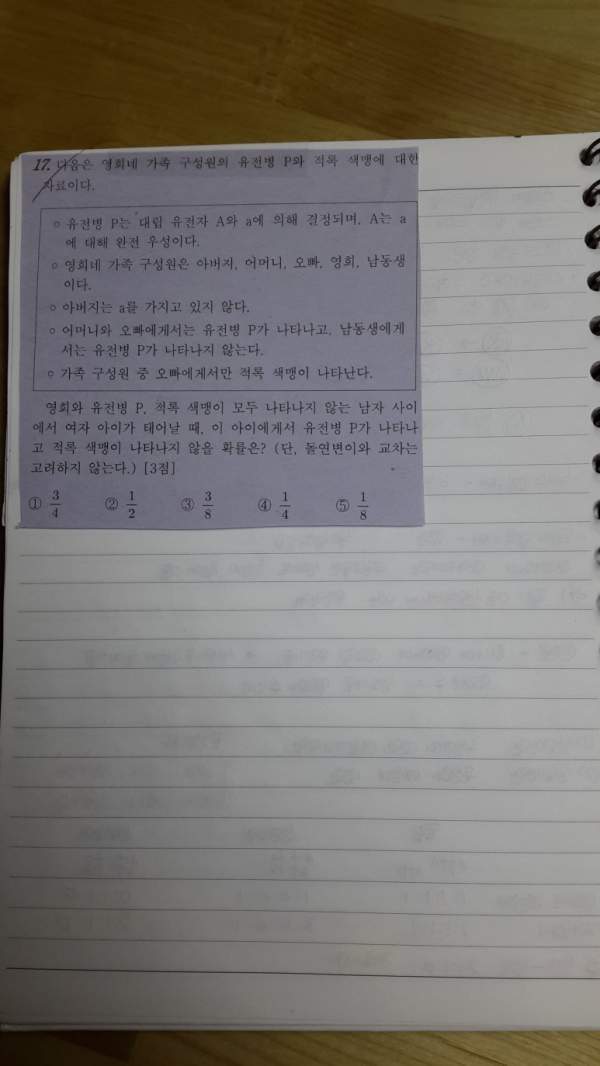 17. 다음은 영희네 가족 구성원의 유전병 P와 적록 색맹에 대한
자료이다.
○ 유전병 P는 대립 유전자 A와 a에 의해 결정되며, A는 a
에 대해 완전 우성이다.
○ 영희네 가족 구성원은 아버지, 어머니, 오빠, 영희, 남동생
이다.
○ 아버지는 a를 가지고 있지 않다.
○ 어머니와 오빠에게서는 유전병 P가 나타나고, 남동생에게
서는 유전병 P가 나타나지 않는다.
○ 가족 구성원 중 오빠에게서만 적록 색맹이 나타난다.
영희와 유전병 P, 적록 색맹이 모두 나타나지 않는 남자 사이
에서 여자 아이가 태어날 때, 이 아이에게서 유전병 P가 나타나
고 적록 색맹이 나타나지 않을 확률은? (단, 돌연변이와 교차는
고려하지 않는다.) [3점]
① 3/4 ② 1/2 ③ 3/8 ④ 1/4 ⑤ 1/8